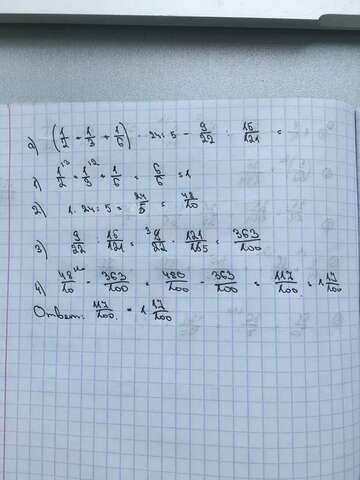 а) (1/2 + 1/3 + 1/6) · 24 : 5 - 9/22 : 15/121 =
1) 1/2 + 1/3 + 1/6 = 6/6 = 1
2) 1 · 24 : 5 = 24/5 = 48/10
3) 9/22 : 15/121 = 9/22 · 121/15 = 363/100
4) 48/10 - 363/100 = 480/100 - 363/100 = 117/100 = 1 17/100
Ответ: 117/100 = 1 17/100